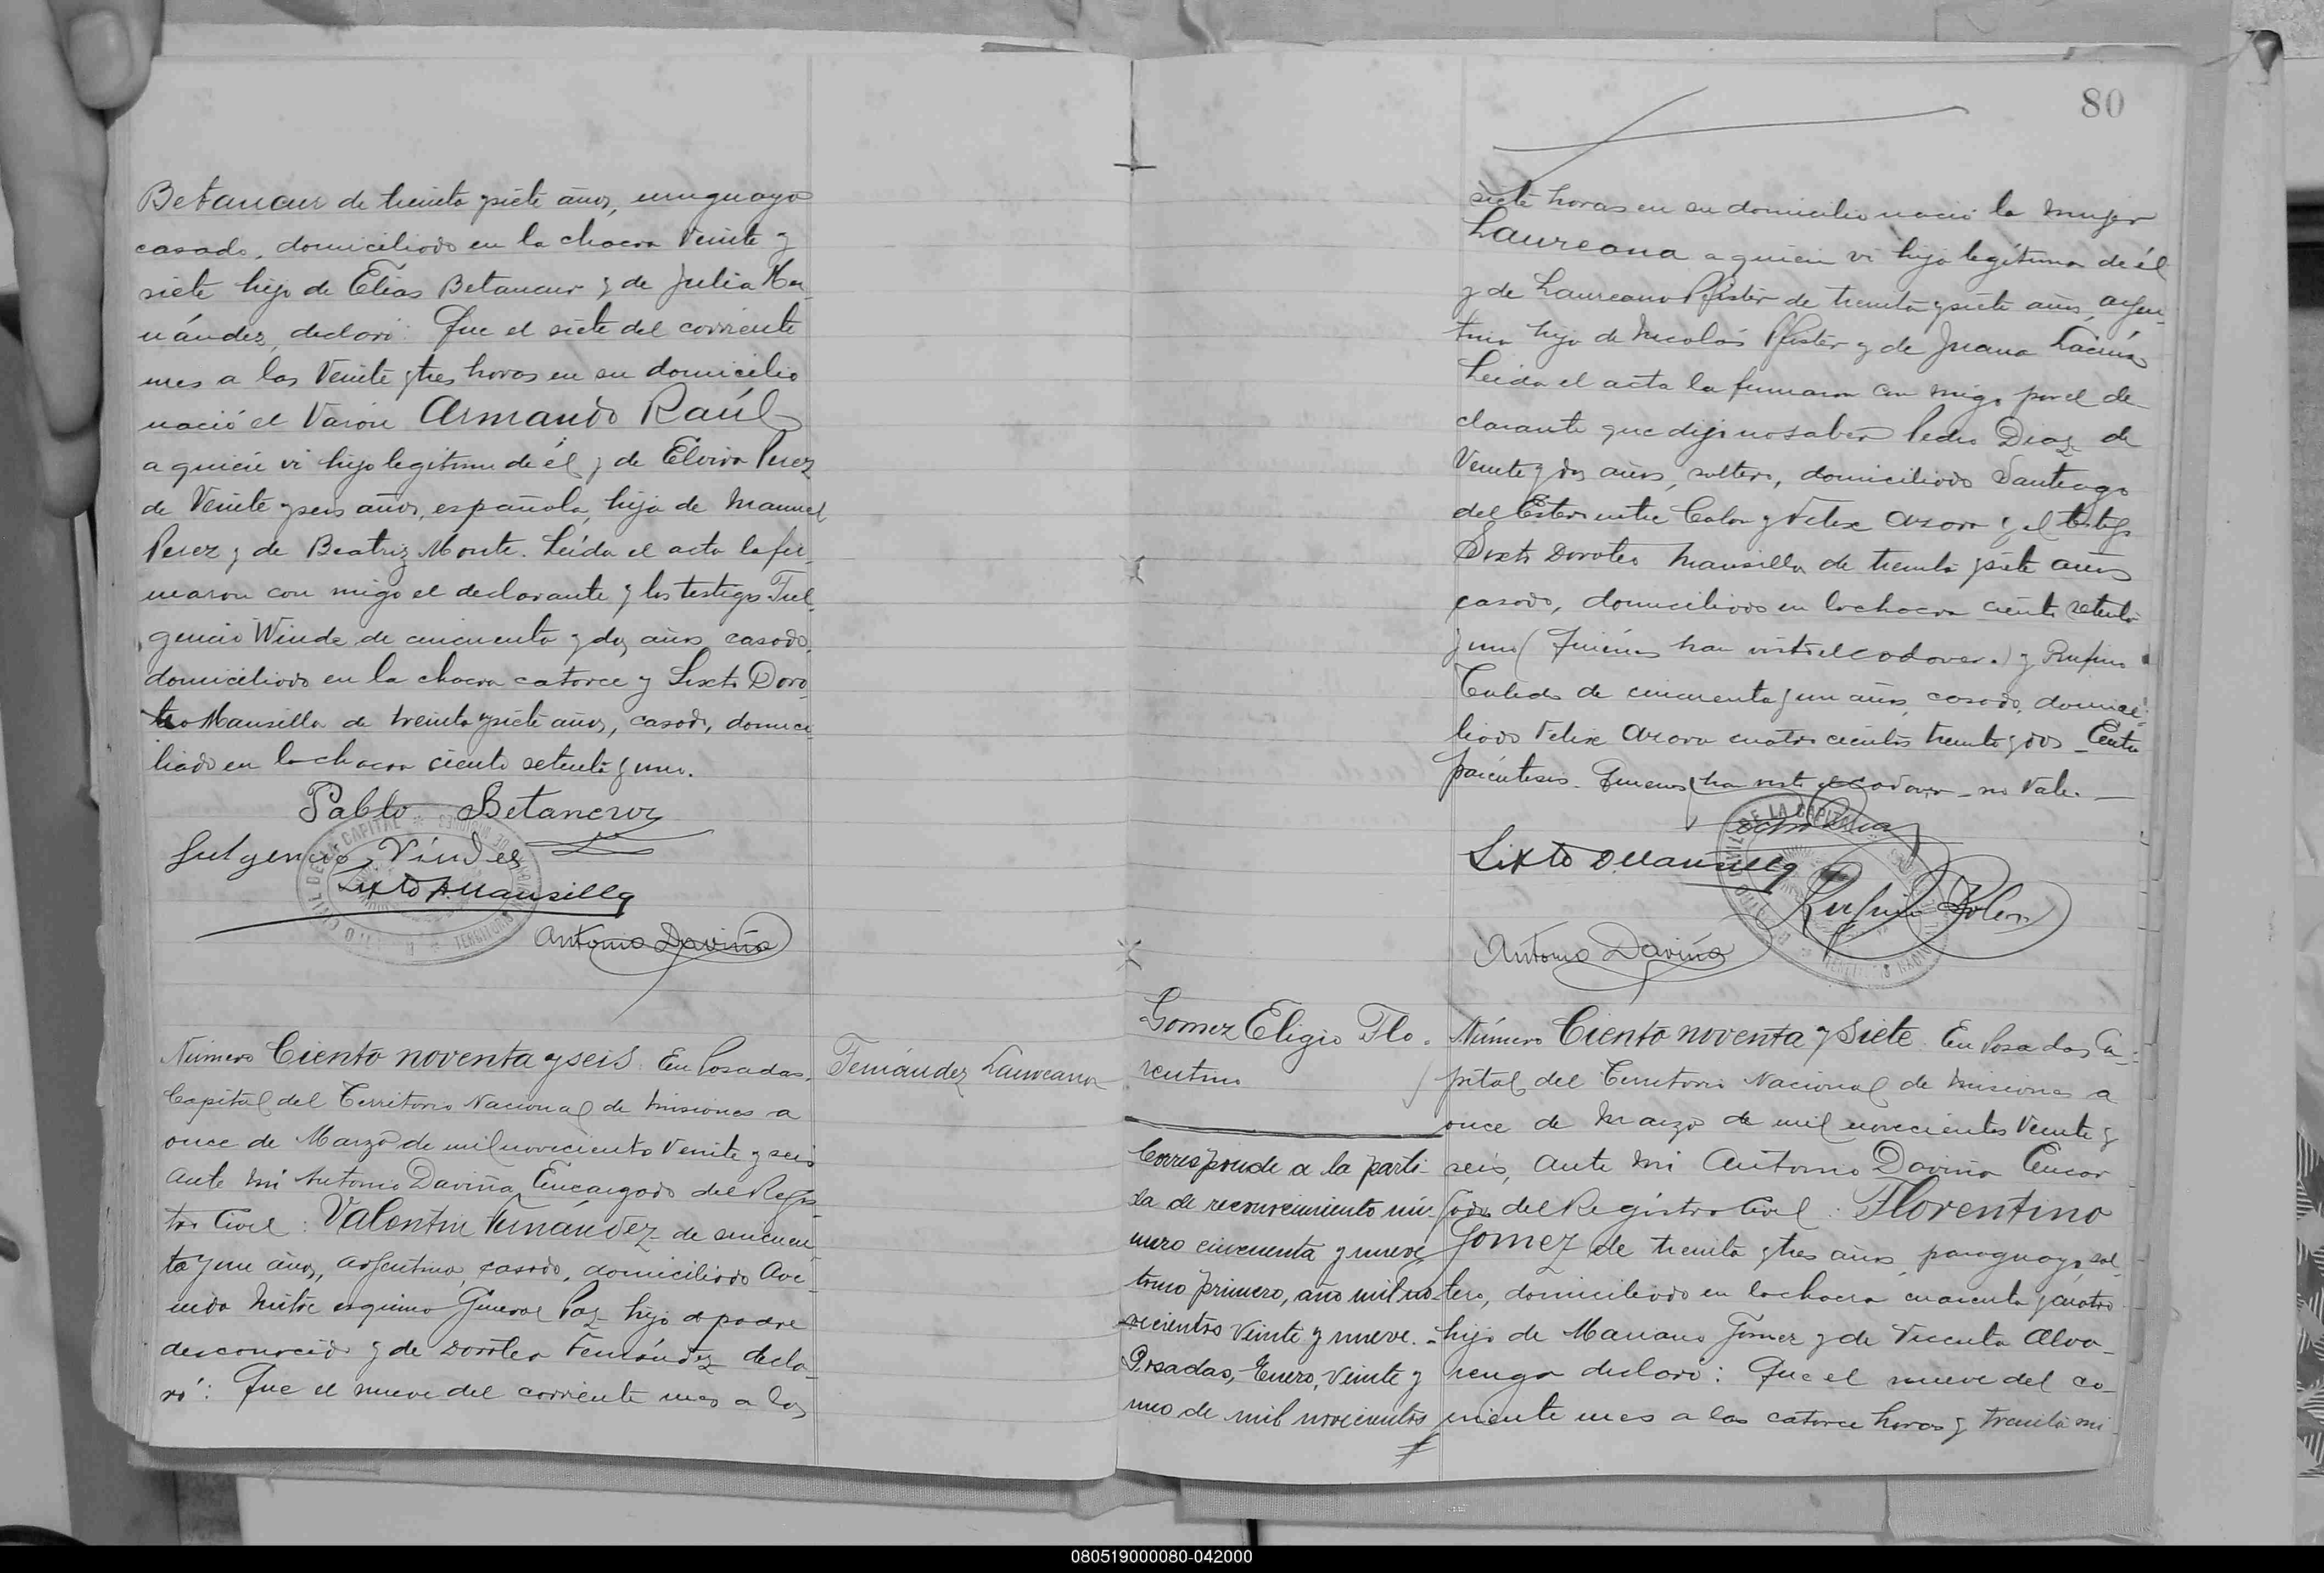 Betancur de treinta y siete años, uruguayo
casado, domiciliado en la chacra Veinte y
siete hijo de Elías Betancur y de Julia Her-
nández, declaró: Que el siete del corriente
mes a las Veinte y tres horas en su domicilio
nació el Varón Armando Raúl
a quien vi hijo legítimo de él y de Elvira Perez
de Veinte y seis años, española, hija de Manuel
Perez y de Beatriz Monte. Leída el acta la fir-
maron con migo el declarante y los testigos Ful-
gencio Winde de cincuenta y dos años, casado,
domiciliado en la chacra catorce y Sixto Doro-
teo Mansilla de treinta y siete años, casado, domici-
liado en la chacra ciento setenta y uno.
Pablo Betancur
Fulgencio Vindes
Sixto D. Mansilla
Antonio Daviña
Número Ciento noventa y seis. En Posadas,
Capital del Territorio Nacional de Misiones a
once de Marzo de mil novecientos Veinte y seis
Ante mí Antonio Daviña Encargado del Regis-
tro Civil: Valentin Fernández de cincuen-
ta y un años, argentino, casado, domiciliado Ave-
nida Mitre esquina General Paz hijo de padre
desconocido y de Dorotea Fernández decla-
ró: Que el nueve del corriente mes a las
Fernández Laureana
80
siete horas en su domicilio nació la mujer
Laureana a quien vi hija legítima de él
y de Laureana Pfister de treinta y siete años, argen-
tina hija de Nicolás Pfister y de Juana
Leída el acta la firmaron con migo por el de-
clarante que dijo no saber Pedro Diaz de
Veinte y dos años, soltero, domiciliado Santiago
del Estero entre Colon y Felix Azara y el testigo
Sixto Doroteo Mansilla de treinta y siete años
casado, domiciliado en la chacra ciento setenta
y uno (quiénes han visto el cadaver.) y Rufino
Toledo de cincuenta y un años, casado, domici-
liado Felix Azara cuatro cientos treinta y dos - Entre
paréntesis. Quienes han visto el cadaver - no Vale. -
Pedro Diaz
Sixto D. Mansilla
Rufino Toledo
Antonio Daviña
Gomez Eligio Flo-
rentino
Corresponde a la parti-
da de reconocimiento nú-
mero cincuenta y nueve
tomo primero, año mil no-
vecientos Veinte y nueve. -
Posadas, Enero, Veinte y
uno de mil novecientos
Número Ciento noventa y siete. En Posadas, Ca-
pital del Territorio Nacional de Misiones a
once de Marzo de mil novecientos Veinte y
seis, Ante mí Antonio Daviña Encar-
gado del Registro Civil: Florentino
Gomez de treinta y tres años, paraguayo, sol-
tero, domiciliado en la chacra cuarenta y cuatro
hijo de Mariano Gomez y de Vicenta Alva-
renga declaró: Que el nueve del co-
rriente mes a las catorce horas y treinta mi-
080519000080-042000